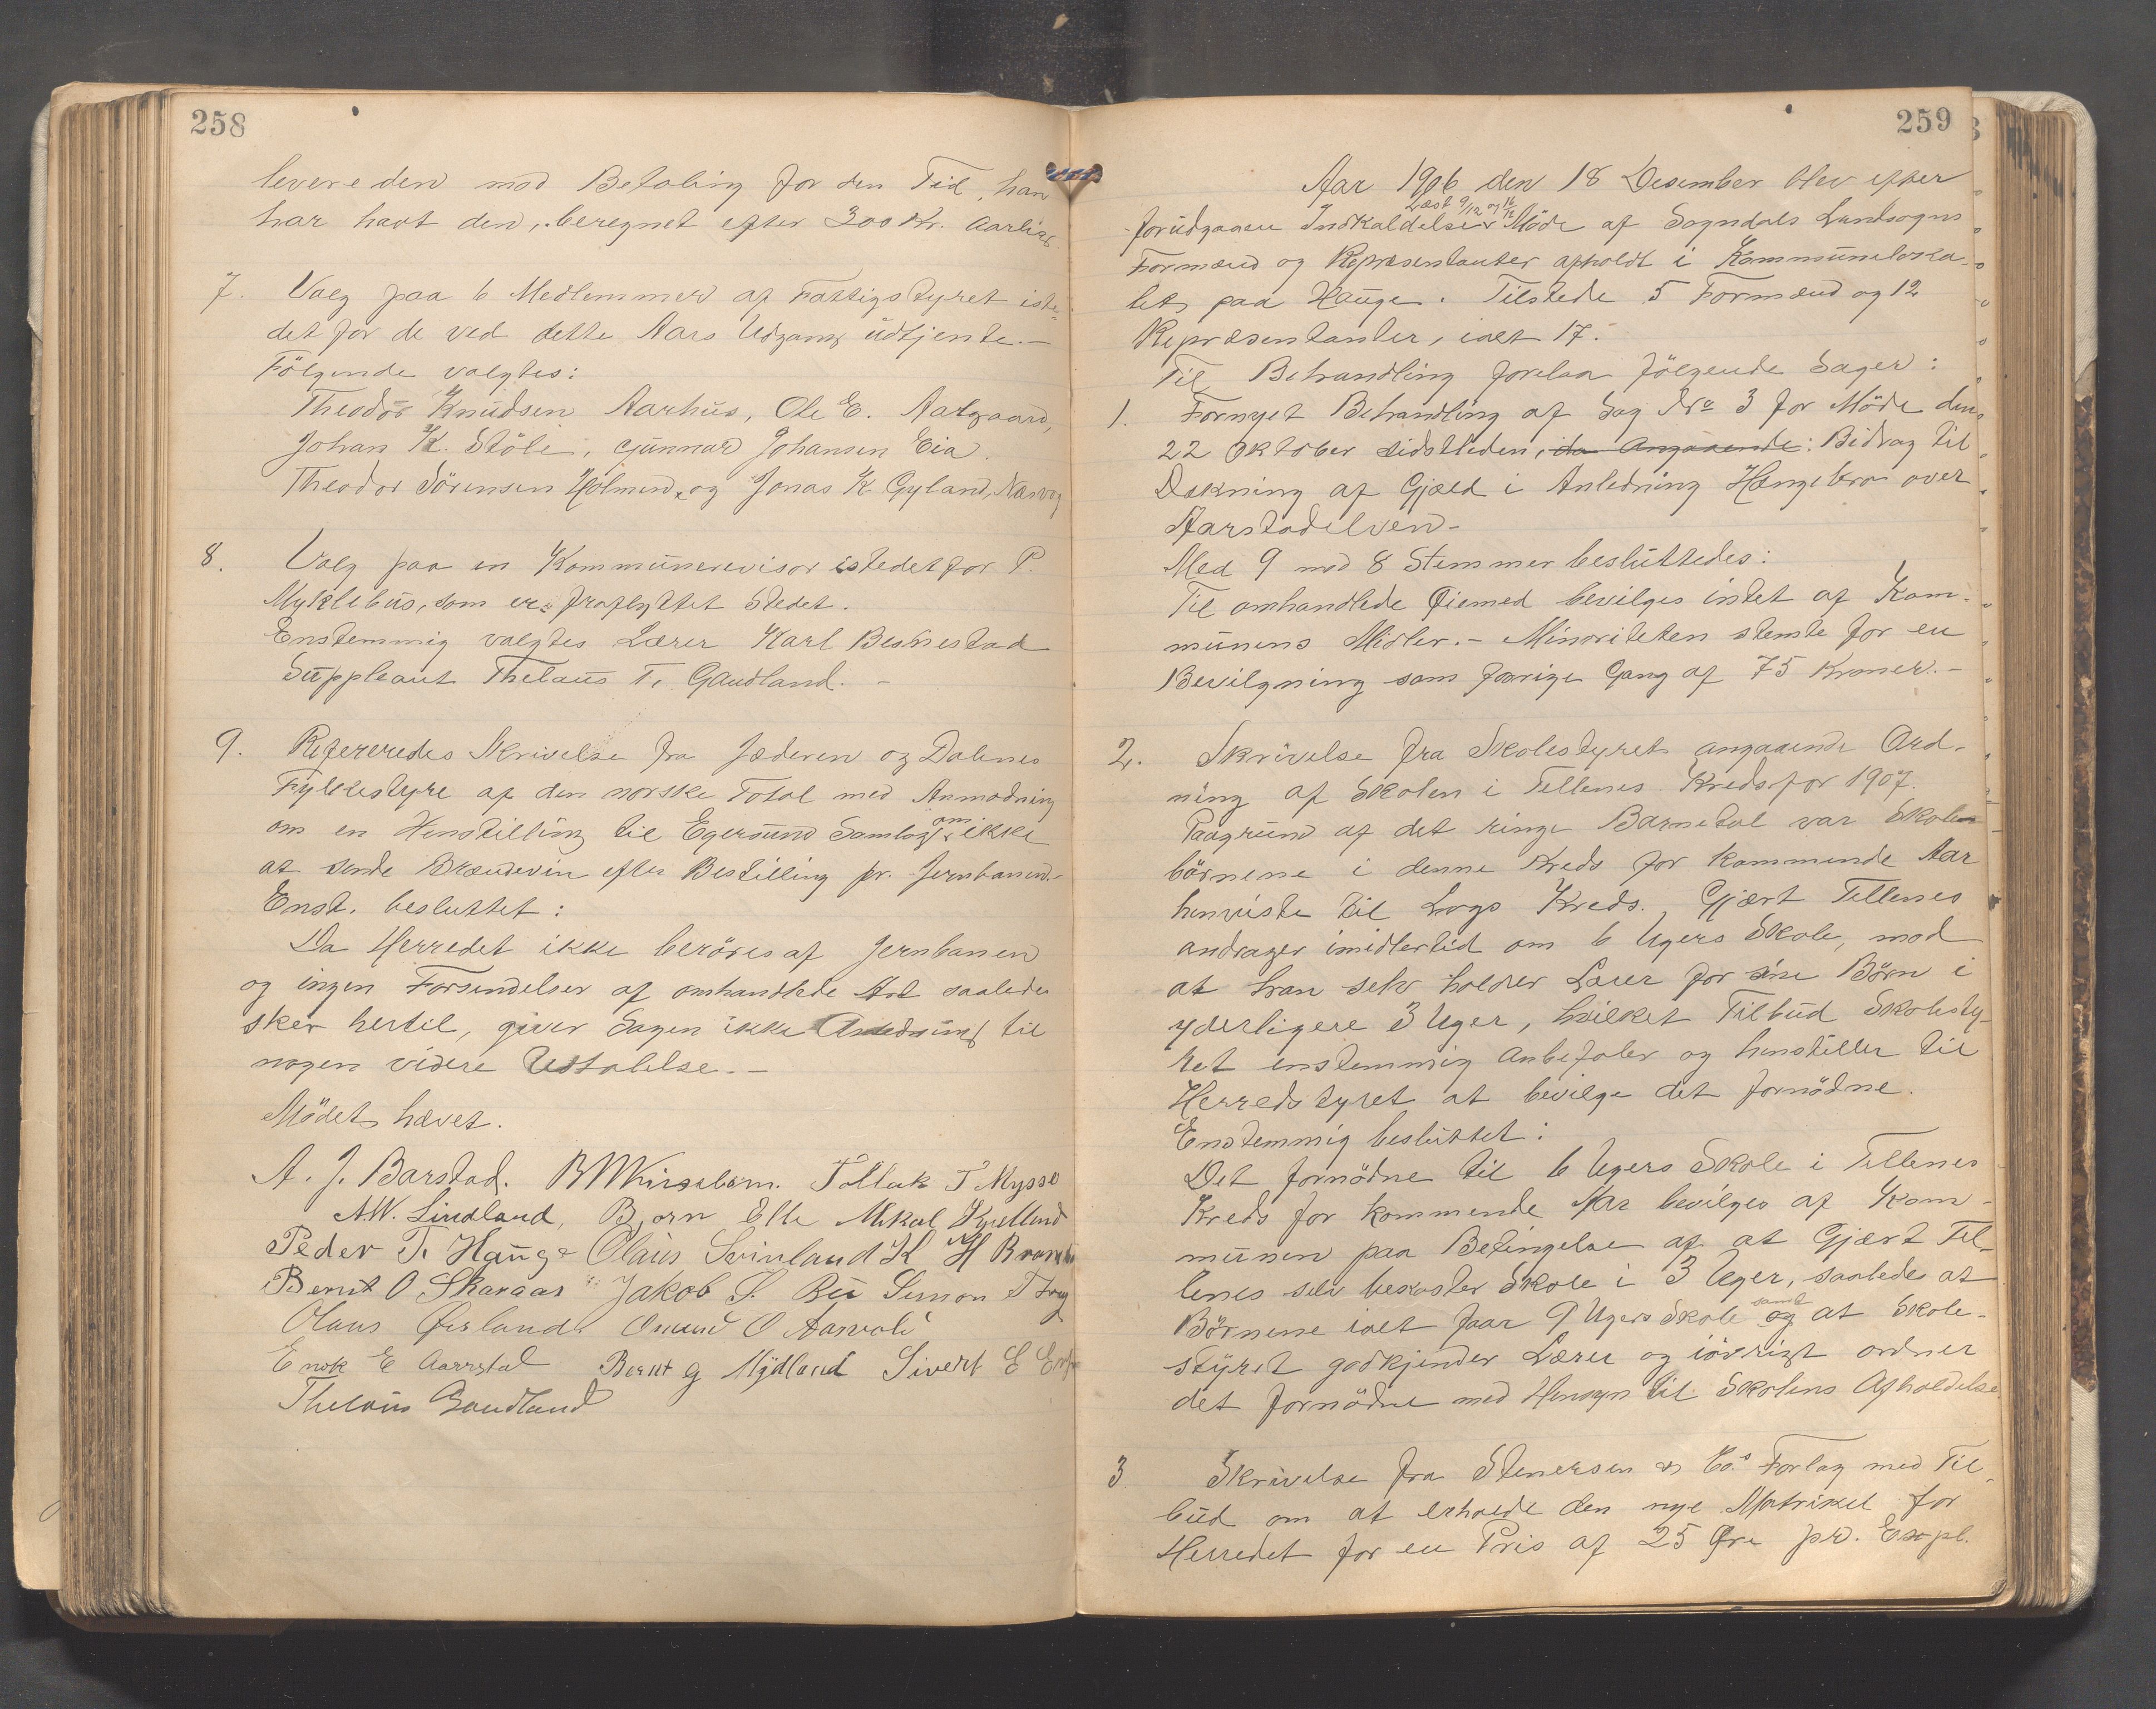 258
levere den mod Betaling for den Tid, han
har havt den, beregnet efter 300 Kr. aarligt.
7. Valg paa 6 Medlemmer af Fattigstyret iste-
det for de ved dette Aars Udgang udtjente. —
Följende valgtes:
Theodor Knudsen Aarhus, Ole E. Aalgaard,
Johan K. Stöle, Gunnar Johansen Eia.
Theodor Sörensen Holmen, og Jonas K. Gyland,
8. Valg paa en Kommunerevisor istedetfor P.
Myklebus, som er fraflyttet Stedet.
Enstemmig valgtes Lærer Karl
Suppleant Thelaus T. Gaudland. —
9. Refereredes Skrivelse fra Jæderen og Dalenes
Fylkestyre af den norske Total med Anmodning
om en Henstilling til Egersund Samlag om ikke
at sende Brændevin efter Bestilling pr. Jernbanen. —
Enst. besluttet:
Da Herredet ikke beröres af Jernbanen
og ingen Forsendelser af omhandlede Art saaledes
sker hertil, giver Sagen ikke Anledning til
nogen videre Udtalelse. —
Mödet hævet.
A. J. Barstad. Tollak T Mysse
A.W. Lindland, Bjørn Elle Mikal
Peder T. Hauge Olaus Svinland K H
Bernt O Skaraas Jakob S. Bu Simon T
Olaus Østand Omund O Aarvoli
Enok E Aarrstad Bernt G Mydland Sivert E
Thelaus Gaudland
259
Aar 1906 den 18 Desember blev efter
forudgaaen Indkaldelse Læst 9/12 og 16/12 Möde af Sogndals Landsogns
Formænd og Repræsentanter afholdt i Kommuneloka-
let paa Hauge. Tilstede 5 Formænd og 12
Repræsentanter, ialt 17.
Til Behandling forelaa fölgende Sager:
1. Fornyet Behandling af Sag No 3 for Möde den
22 Oktober sidstleden, da Angaaende: Bidrag til
Dækning af Gjæld i Anledning Hængebro over
Aarstadelven —
Med 9 mod 8 Stemmer besluttedes:
Til omhandlede Øiemed bevilges intet af Kom-
munens Midler. — Minoriteten stemte for en
Bevilgning som forrige Gang af 75 Kroner. —
2. Skrivelse fra Skolestyret angaaende Ord-
ning af Skolen i Tellenes Kreds for 1907.
Paagrund af det ringe Barnetal var Skole-
börnene i denne Kreds for kommende Aar
henviste til Logs Kreds. Gjært Tellenes
andrager imidlertid om 6 Ugers Skole, mod
at han selv holder Lærer for sine Börn i
yderligere 3 Uger, hvilket Tilbud Skolesty-
ret enstemmig anbefaler og henstiller til
Herredstyret at bevilge det fornödne.
Enstemmig besluttet:
Det fornödne til 6 Ugers Skole i Tellenes
Kreds for kommende Aar bevilges af Kom-
munen paa Betingelse af at Gjært Tel-
lenes selv bekoster Skole i 3 Uger, saaledes at
Börnene ialt faar 9 Ugers Skole og samt at Skole-
styret godkjender Lærer og iövrigt ordner
det fornödne med Hensyn til Skolens Afholdelse
3 Skrivelse fra Stenersen & Co.s Forlag med Til-
bud om at erholde den nye Matrikel for
Herredet for en Pris af 25 Øre pr. Expl.